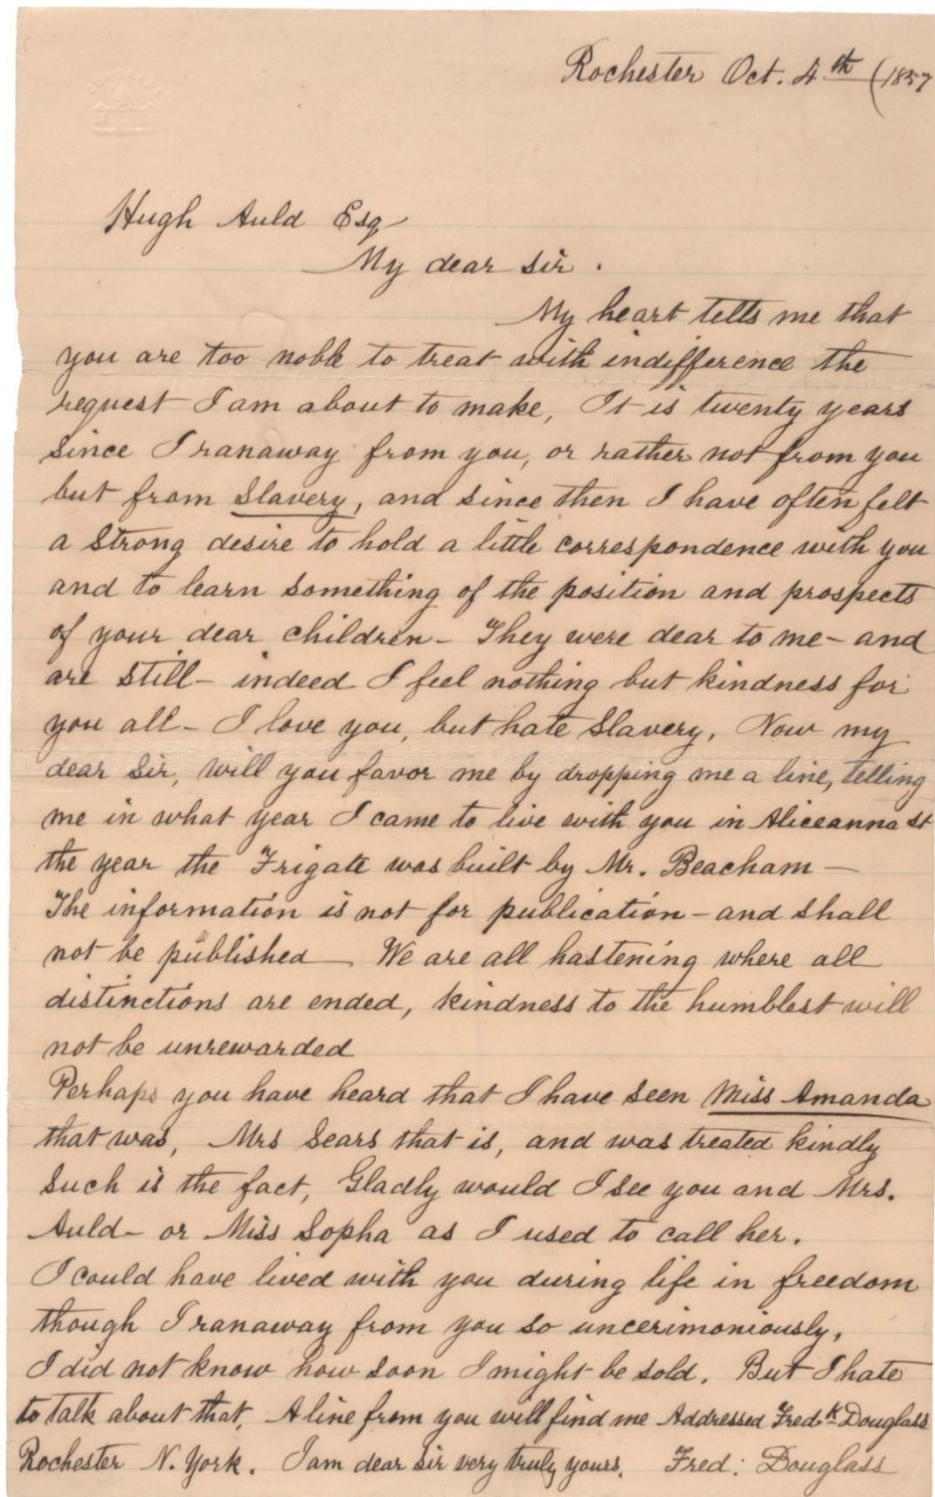 Rochester Oct. 4th (1857
Hugh Auld Esq
My dear sir.
My heart tells me that
you are too noble to treat with indifference the
request I am about to make, It is twenty years
since I ranaway from you, or rather not from you
but from Slavery, and since then I have often felt
a strong desire to hold a little correspondence with you
and to learn something of the position and prospects
of your dear children - They were dear to me - and
are still - indeed I feel nothing but kindness for
you all - I love you, but hate Slavery, Now my
dear Sir, will you favor me by dropping me a line, telling
me in what year I came to live with you in Aliceanna St
the year the Frigate was built by Mr. Beacham -
The information is not for publication - and shall
not be published - We are all hastening where all
distinctions are ended, kindness to the humblest will
not be unrewarded
Perhaps you have heard that I have seen Miss Amanda
that was, Mrs Sears that is, and was treated kindly
Such is the fact, Gladly would I see you and Mrs.
Auld - or Miss Sopha as I used to call her.
I could have lived with you during life in freedom
though I ranaway from you so uncerimoniously,
I did not know how soon I might be sold. But I hate
to talk about that. A line from you will find me Addressed Fredk Douglass
Rochester N. York. I am dear sir very truly yours. Fred: Douglass